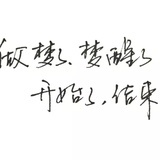 做梦了、梦醒了
开始了、结束